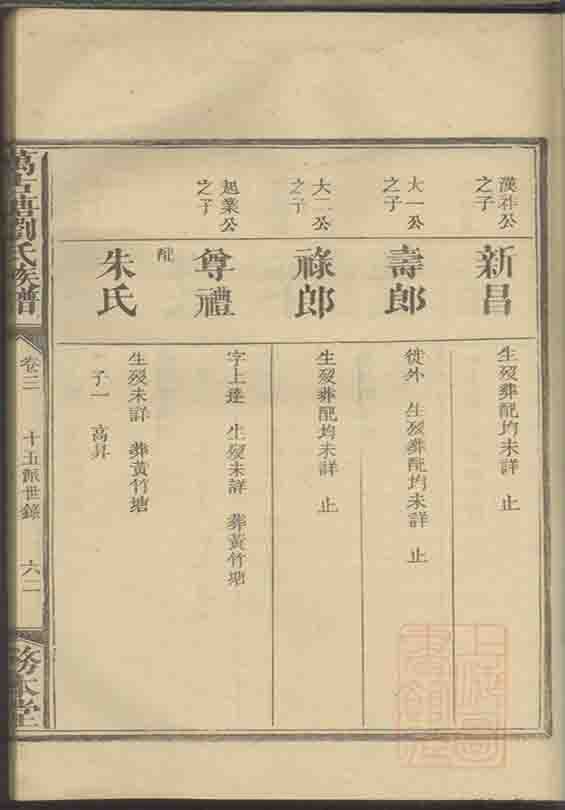 漢祥公
之子
新昌
生歿葬配均未詳 止
大一公
之子
壽郎
徙外 生歿葬配均未詳 止
大二公
之子
祿郎
生歿葬配均未詳 止
起業公
之子
尊禮
字上達 生歿未詳 葬黃竹塘
配
朱氏
生歿未詳 葬黃竹塘
子一 高昇
萬古塘劉氏族譜
卷三
十五派世錄
六二
務本堂